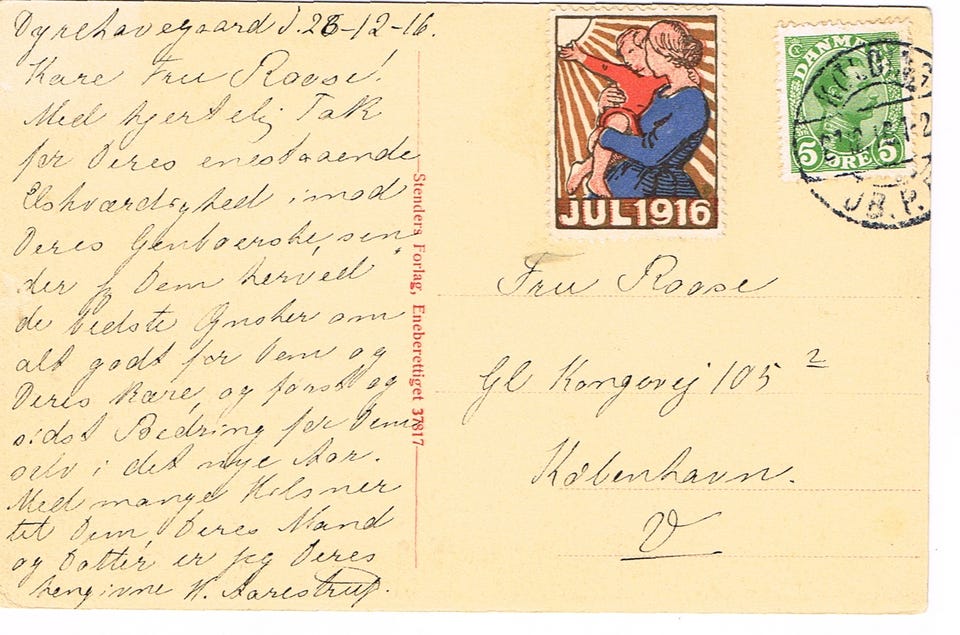 Dyrehavegaard d. 28-12-16.
Kære Fru Roose!
Med hjertelig Tak
for Deres enestaaende
Elskværdighed imod
Deres Genboerske, sen
der jeg Dem herved
de bedste Ønsker om
alt godt for Dem og
Deres Kære, og først og
sidst Bedring for Dem
selv i det nye Aar.
Med mange Hilsner
til Dem, Deres Mand
og Datter er jeg Deres
hengivne H. Aarestrup.
Stenders Forlag, Eneberettiget 37817
JUL 1916
DANMARK
5 ØRE 5
JB.P.
Fru Roose
Gl Kongevej 105 2
København.
V